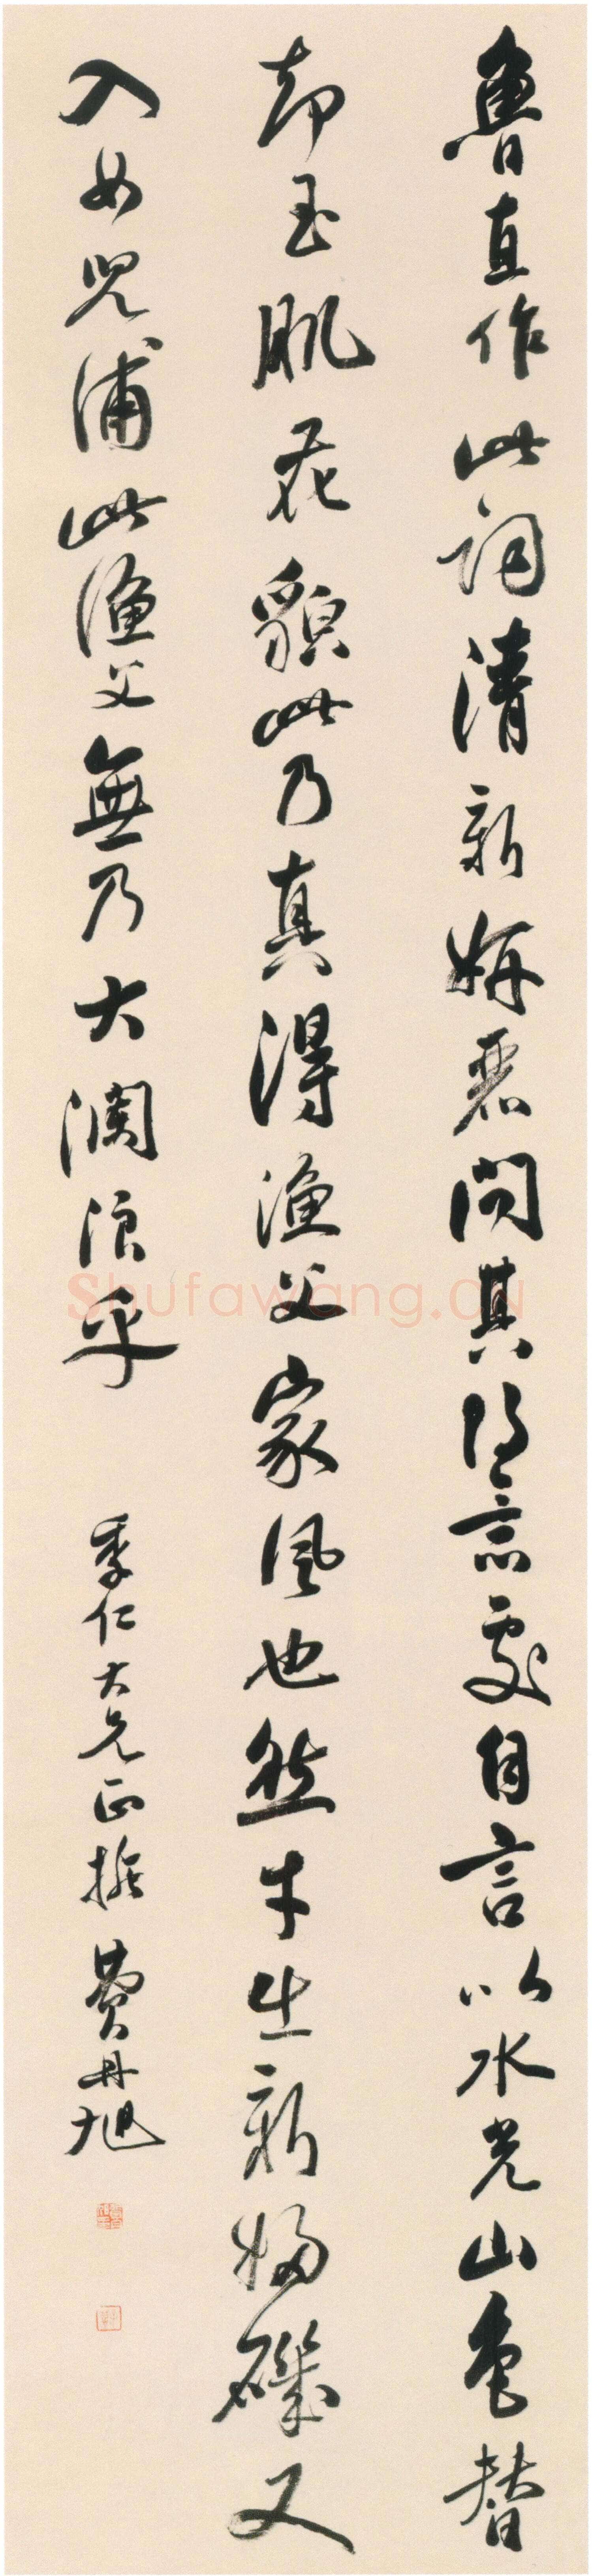 魯直作此詞清新妍麗問其得意處自言以水光山色替
却玉肌花貌此乃真得漁父家風也然才出新婦磯又
入女兒浦此漁父無乃大瀾浪乎
季仁大兄正 費丹旭
Shufawang.CN